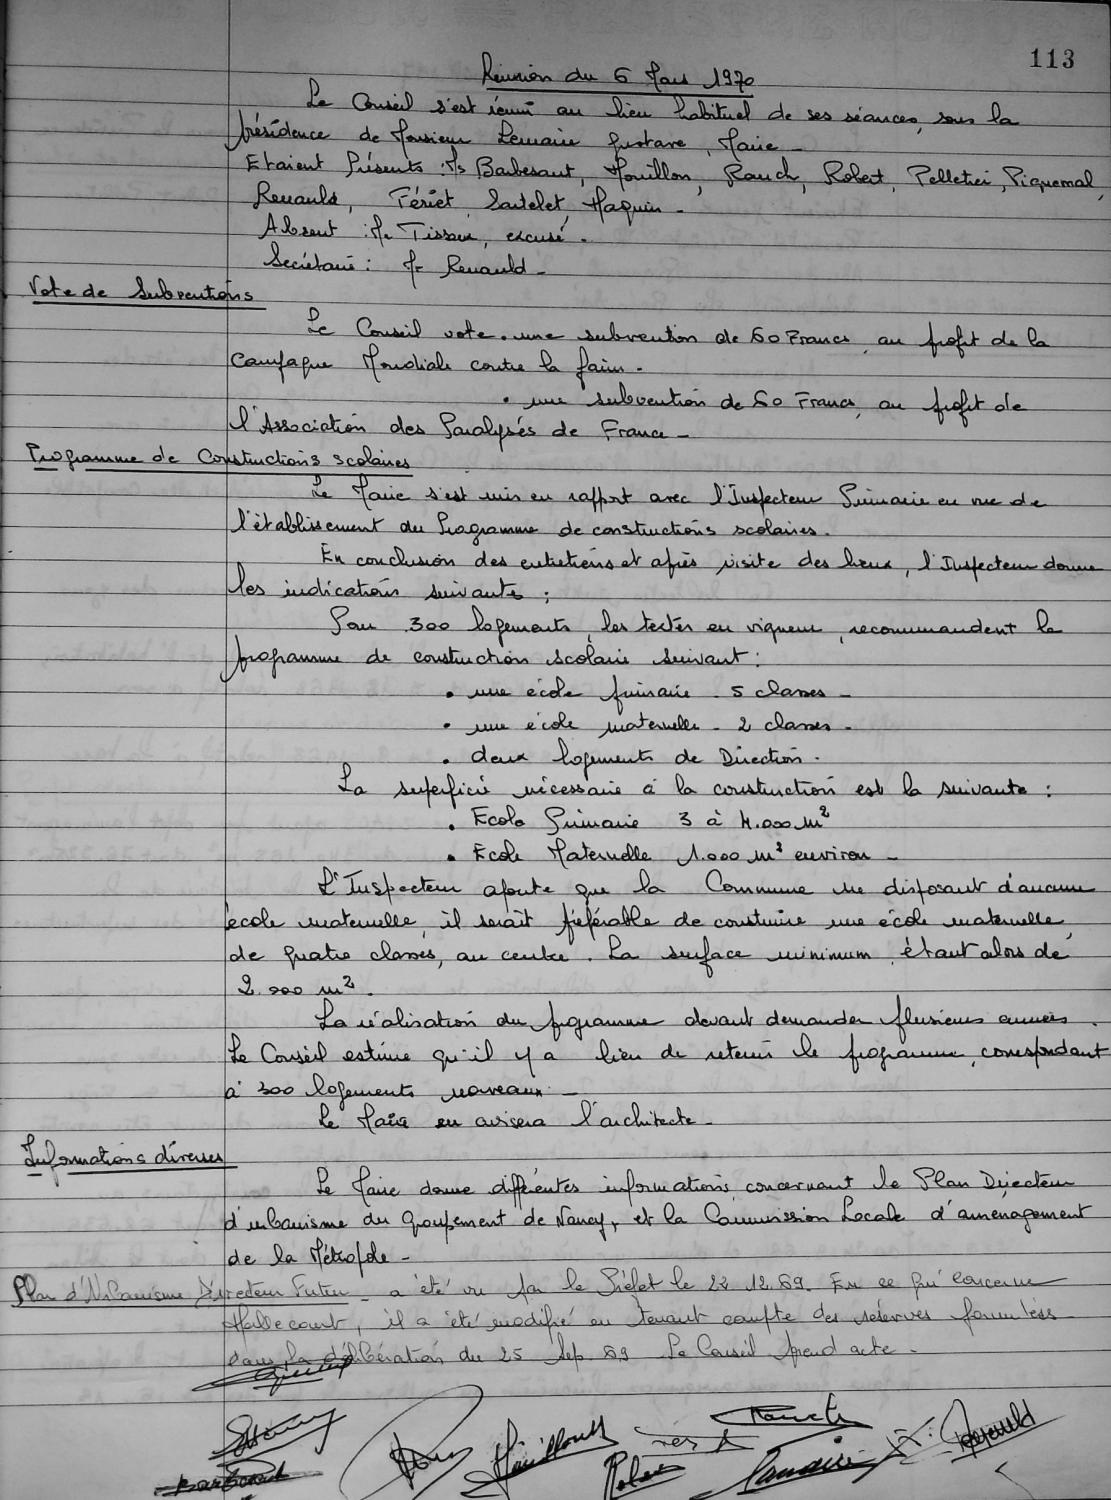 113
Réunion du 6 Mars 1970
Le Conseil s'est réuni au lieu habituel de ses séances, sous la
présidence de Monsieur Lemaire Gustave, Maire -
Etaient Présents : Ms Barbesant, Houillon, Rauch, Robert, Pelletier, Piquemal,
Renauld, Fériet, Sautelet, Maquin -
Absent : M. Tissoux, excusé -
Secrétaire : Mr Renauld -
Vote de Subventions
Le Conseil vote . une subvention de 60 Francs, au profit de la
Campagne Mondiale contre la faim -
. une subvention de 60 Francs, au profit de
l'Association des Paralysés de France -
Programme de Constructions scolaires
Le Maire s'est mis en rapport avec l'Inspecteur Primaire en vue de
l'établissement du Programme de constructions scolaires.
En conclusion des entretiens et après visite des lieux, l'Inspecteur donne
les indications suivantes :
Pour 300 logements, les textes en vigueur, recommandent le
programme de construction scolaire suivant :
. une école primaire - 5 classes -
. une école maternelle - 2 classes -
. deux logements de Direction -
La superficie nécessaire à la construction est la suivante :
. Ecole Primaire 3 à 4.000 m²
. Ecole Maternelle 1.000 m² environ -
L'Inspecteur ajoute que la Commune ne disposant d'aucune
école maternelle, il serait préférable de construire une école maternelle
de quatre classes, au centre. La surface minimum étant alors de
2.000 m².
La réalisation du programme devant demander plusieurs années.
Le Conseil estime qu'il y a lieu de retenir le programme, correspondant
à 300 logements nouveaux -
Le Maire en avisera l'architecte -
Informations diverses
Le Maire donne différentes informations concernant le Plan Directeur
d'urbanisme du Groupement de Nancy, et la Commission Locale d'aménagement
de la Métropole -
Plan d'Urbanisme Directeur Futur - a été vu par le Préfet le 22.12.69. En ce qui concerne
, il a été modifié en tenant compte des réserves formulées
dans la délibération du 25 Sep. 69 Le Conseil prend acte -
Houillon
Rauch
Robert
Lemaire
Renauld